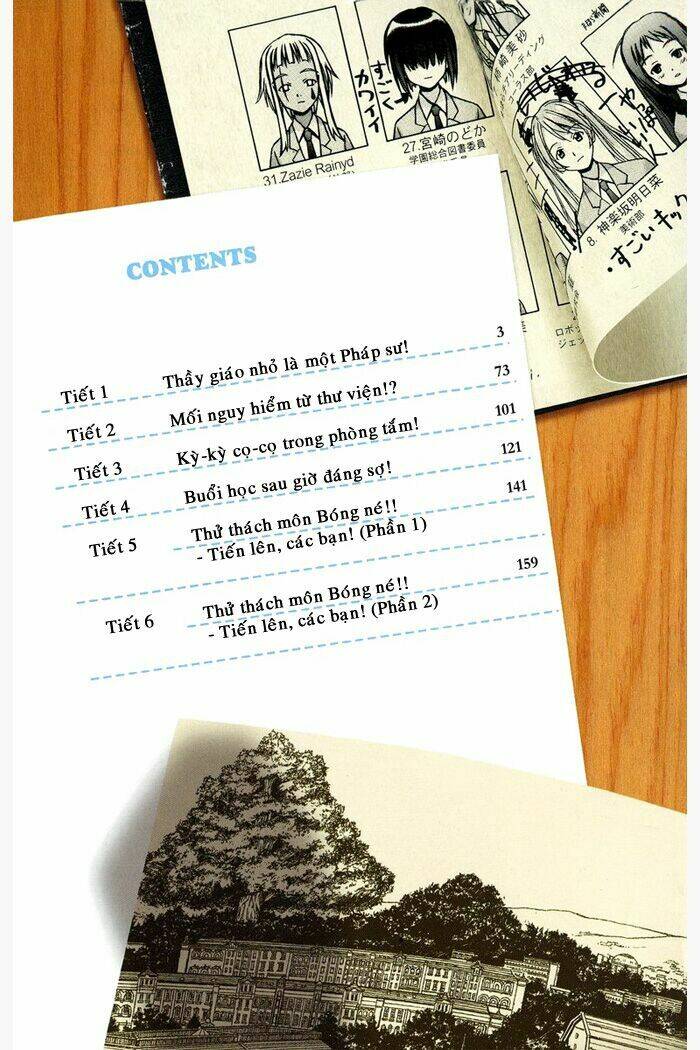 31.Zazie Rainyd
すごく
カワイイ
27.宮崎のどか
学園総合図書委員
8. 神楽坂明日菜
美術部
・すごいキック
CONTENTS
Tiết 1 Thầy giáo nhỏ là một Pháp sư! 3
Tiết 2 Mối nguy hiểm từ thư viện!? 73
Tiết 3 Kỳ-kỳ cọ-cọ trong phòng tắm! 101
Tiết 4 Buổi học sau giờ đáng sợ! 121
Tiết 5 Thử thách môn Bóng né!! 141
- Tiến lên, các bạn! (Phần 1)
Tiết 6 Thử thách môn Bóng né!! 159
- Tiến lên, các bạn! (Phần 2)